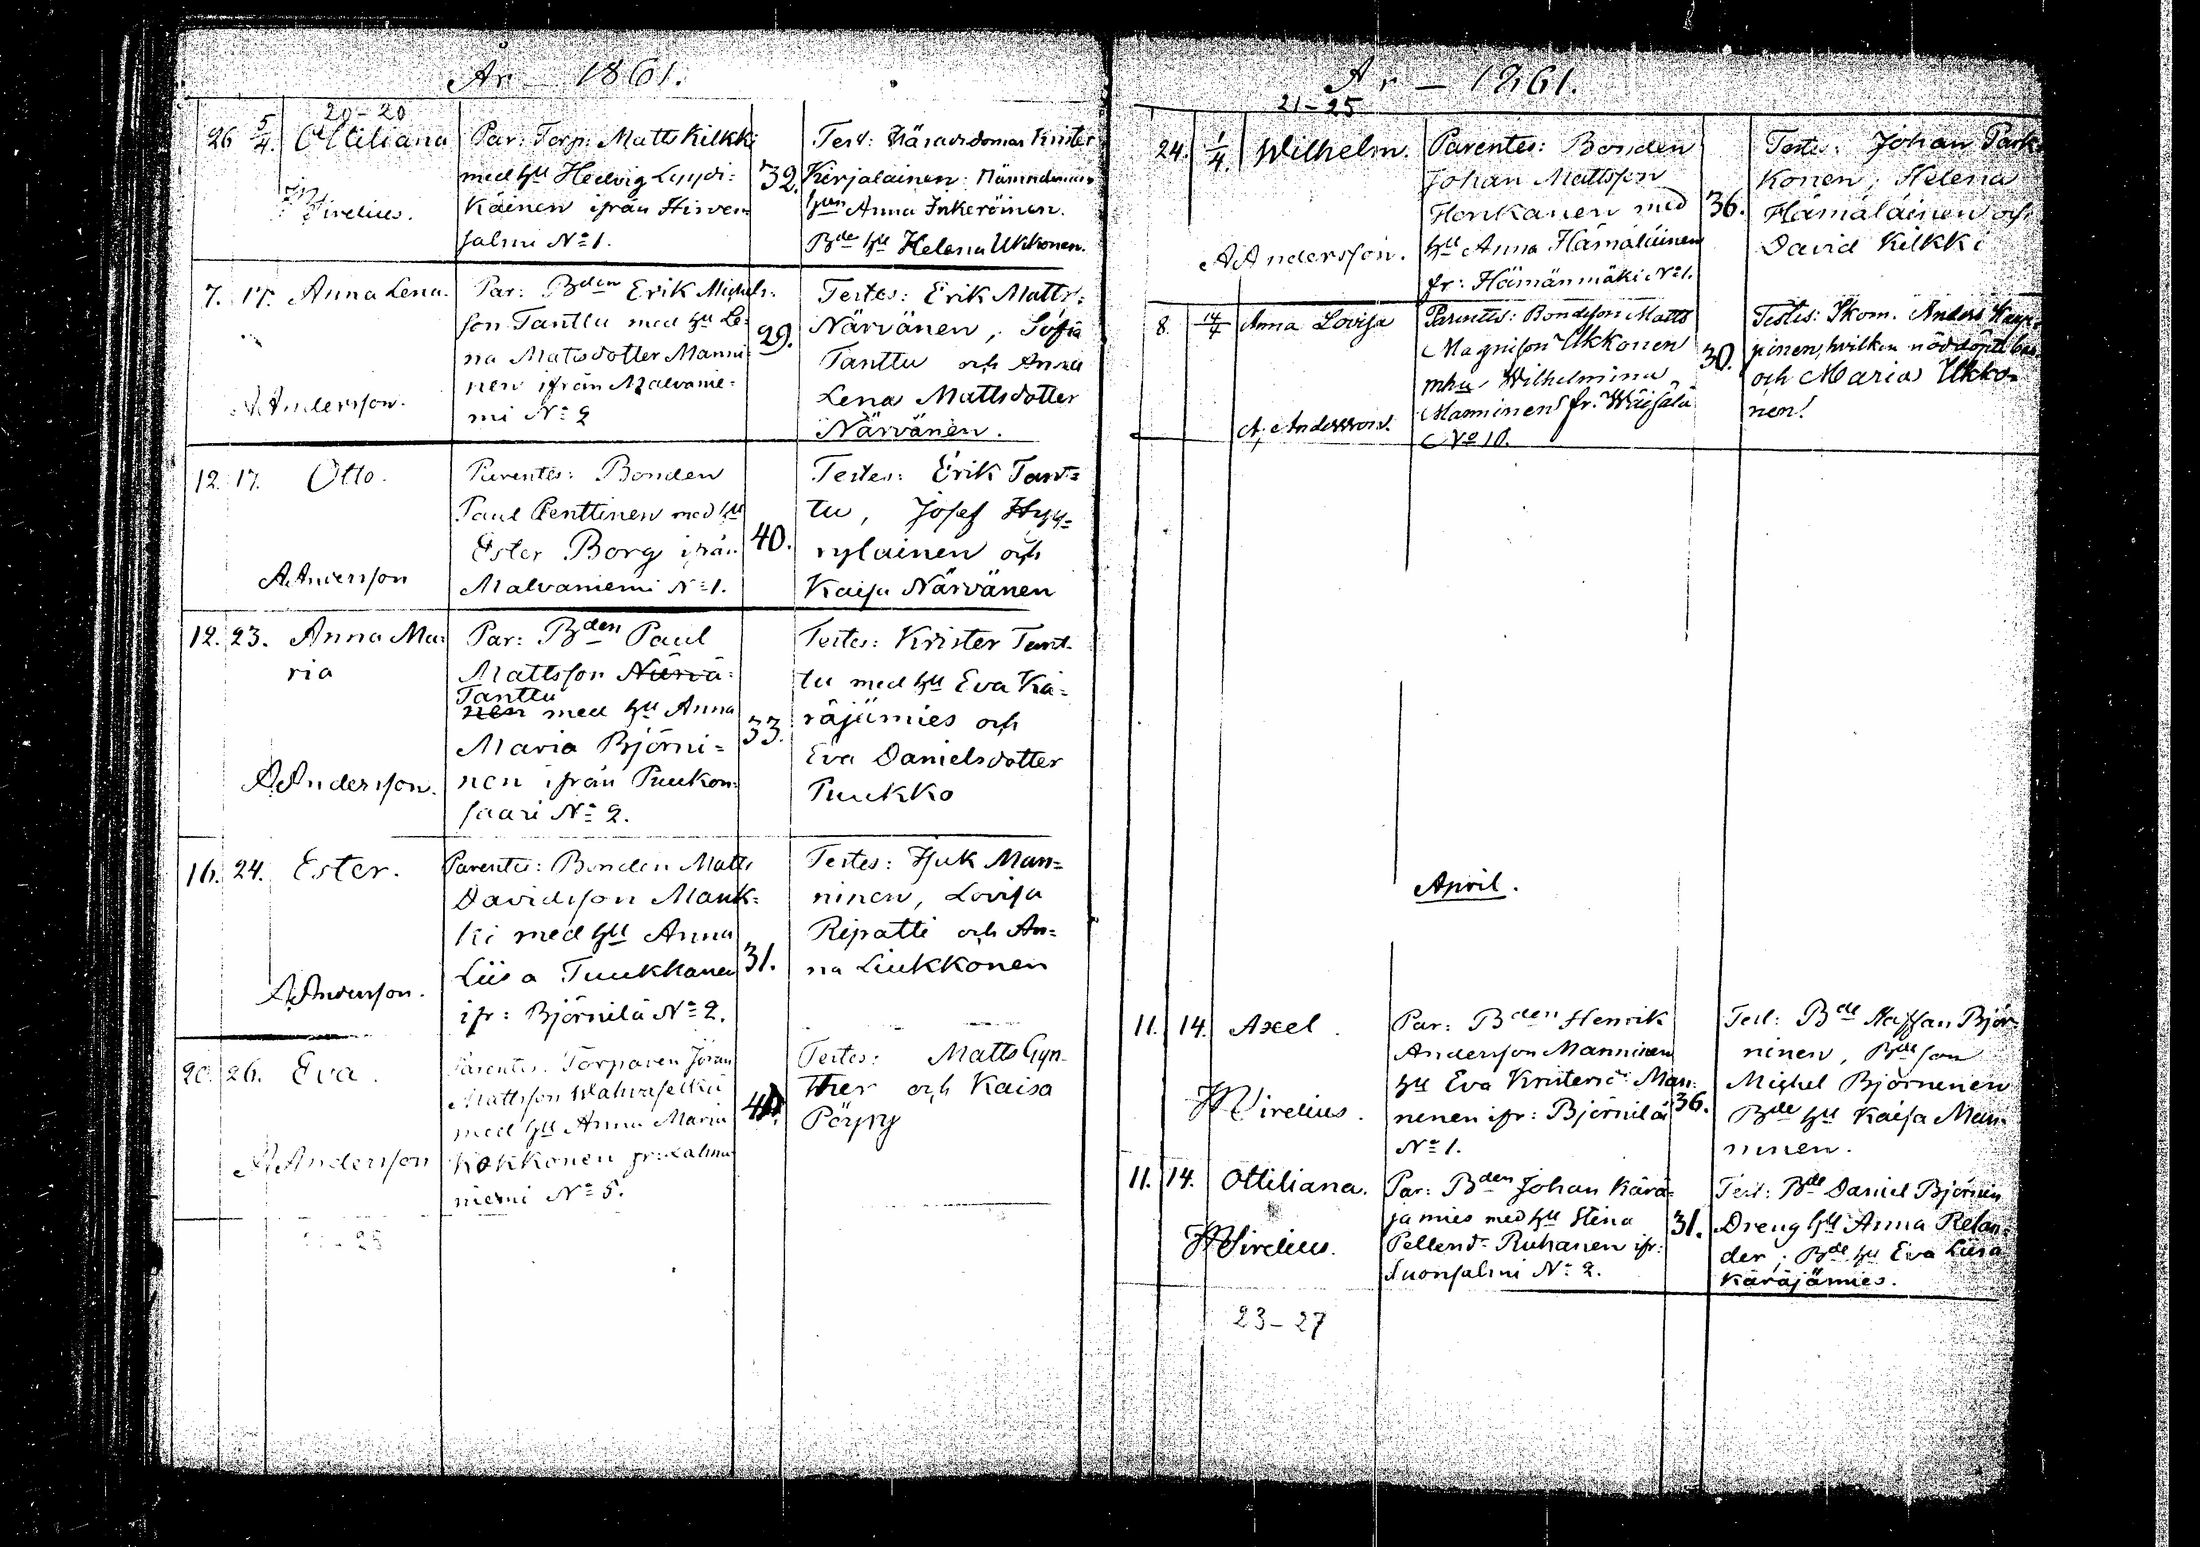 År – 1861.
20–20
26 5/4. Ottiliana
Wirelius.
Par: Torp: Matts Kilkki
med hu Hedvig Lyydi:
käinen ifrån Hirven
salmi No 1.
32.
Test: Häradsdomar Krister
Kirjalainen: Nämndemans
hun Anna Inkeröinen.
Bde hu Helena Ukkonen.
7. 17. Anna Lena.
A Andersson.
Par: Bden Erik Michels:
son Tanttu med hu Le:
na Matsdotter Manni:
nen ifrån Malvanie:
mi No 2
29.
Testes: Erik Matts:
Närvänen, Sofia
Tanttu och Anna
Lena Mattsdotter
Närvänen.
12. 17. Otto.
A Andersson
Parentes: Bonden
Paul Penttinen med hu
Ester Borg ifrån
Malvaniemi No 1.
40.
Testes: Erik Tant=
tu, Josef Hyy=
rylainen och
Kaisa Närvänen
12. 23. Anna Ma:
ria
A Andersson.
Par: Bden Paul
Mattsson Närvä:
Tanttu
nen med hu Anna
Maria Björni=
nen ifrån Puukon:
saari No 2.
33.
Testes: Krister Tant:
tu med hu Eva Kä=
räjämies och
Eva Danielsdotter
Puukko
16. 24. Ester.
A Andersson.
Parentes: Bonden Matts
Davidsson Mauk=
ki med hu Anna
Liisa Tuukkanen
ifr: Björnilä No 2.
31.
Testes: Isak Man=
ninen, Lovisa
Repatti och An=
na Liukkonen
20. 26. Eva.
A Andersson
Parentes: Torparen Johan
Mattsson Wahvaselkä
med hu Anna Maria
Kokkonen fr: Lahna
niemi No 5.
Testes: Matts Gyn-
ther och Kaisa
Pöyry
År – 1861.
21–25
24. 1/4. Wilhelm.
A Andersson.
Parentes: Bonden
Johan Mattsson
Honkanen med
hu Anna Hämäläinen
fr: Hämänmäki No 1.
36.
Testes: Johan Park
konen, Helena
Hämäläinen och
David Kilkki
8. 14/4 Anna Lovisa
A. Andersson.
Parentes: Bondeson Matts
Magnison Ukkonen
mhu Wilhelmina
Manninen fr. Wäisälä
No 10.
30.
Testes: Skom. Anders Kaup=
pinen, hvilken nöddöpte
och Maria Ukko=
nen!
April.
11. 14. Axel.
Wirelius.
Par: Bden Henrik
Andersson Manninen
hu Eva Man:
ninen ifr: Björnilä
No 1.
36.
Test: Bde Staffan Björ
ninen, Bde son
Michel Björnenen
Bde hu Kaisa Man:
ninen.
11. 14. Ottiliana.
Wirelius.
Par: Bden Johan Kärä=
jämies med hu Stina
Pellend: Ruhanen ifr:
Suonsalmi No 2.
31.
Test: Bde Daniel Björnin
Dreng hu Anna Relan=
der; Bde hu Eva Liisa
Käräjämies.
23–27